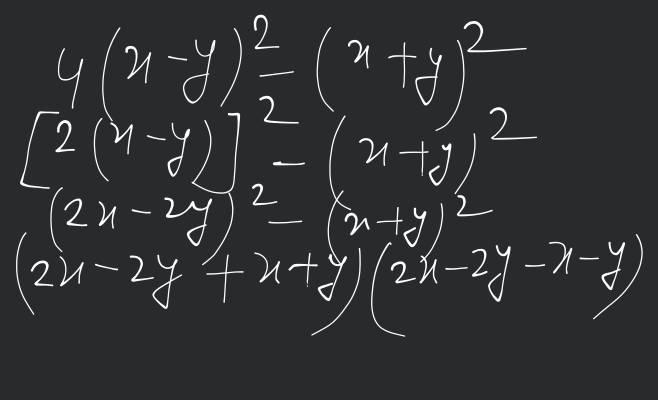 4(x-y)² - (x+y)²
[2(x-y)]² - (x+y)²
(2x-2y)² - (x+y)²
(2x-2y+x+y)(2x-2y-x-y)